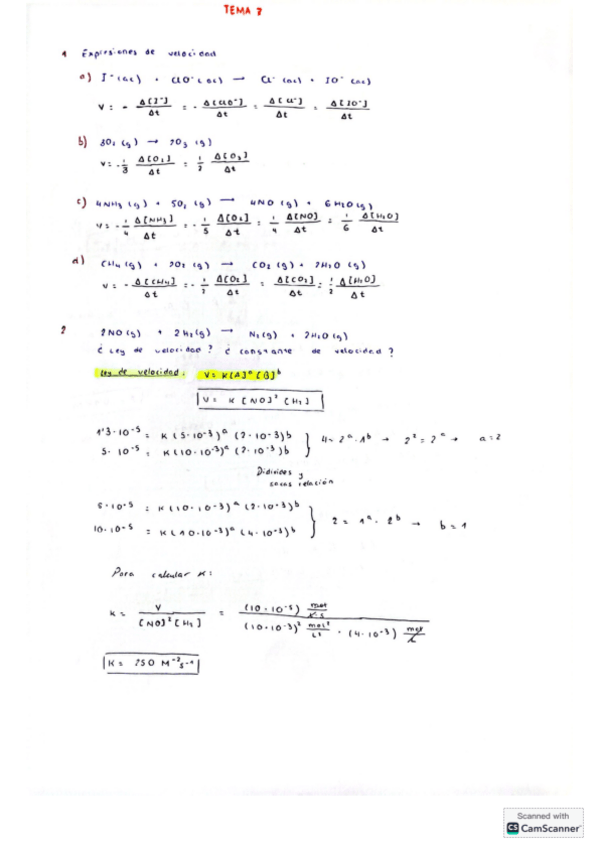 TEMA 7
1 Expresiones de velocidad
a) I⁻(ac) + ClO⁻(ac) → Cl⁻(ac) + IO⁻(ac)
V = - Δ[I⁻]/Δt = - Δ[ClO⁻]/Δt = Δ[Cl⁻]/Δt = Δ[IO⁻]/Δt
b) 3O₂(g) → 2O₃(g)
V = - 1/3 Δ[O₂]/Δt = 1/2 Δ[O₃]/Δt
c) 4NH₃(g) + 5O₂(g) → 4NO(g) + 6H₂O(g)
V = - 1/4 Δ[NH₃]/Δt = - 1/5 Δ[O₂]/Δt = 1/4 Δ[NO]/Δt = 1/6 Δ[H₂O]/Δt
d) CH₄(g) + 2O₂(g) → CO₂(g) + 2H₂O(g)
V = - Δ[CH₄]/Δt = - 1/2 Δ[O₂]/Δt = Δ[CO₂]/Δt = 1/2 Δ[H₂O]/Δt
2 2NO(g) + 2H₂(g) → N₂(g) + 2H₂O(g)
¿ Ley de velocidad? ¿ constante de velocidad?
Ley de velocidad: V = K[A]ᵃ[B]ᵇ
V = K [NO]² [H₂]
1'3·10⁻⁵ = K(5·10⁻³)ᵃ (2·10⁻³)ᵇ
5·10⁻⁵ = K(10·10⁻³)ᵃ (2·10⁻³)ᵇ } 4 = 2ᵃ·1ᵇ → 2² = 2ᵃ → a = 2
Divides y
sacas relación
5·10⁻⁵ = K(10·10⁻³)ᵃ (2·10⁻³)ᵇ
10·10⁻⁵ = K(10·10⁻³)ᵃ (4·10⁻³)ᵇ } 2 = 1ᵃ·2ᵇ → b = 1
Para calcular K:
K = V/[NO]²[H₂] = (10·10⁻⁵) mol/L·s / (10·10⁻³)² mol²/L² · (4·10⁻³) mol/L
K = 250 M⁻²s⁻¹
Scanned with
CS CamScanner